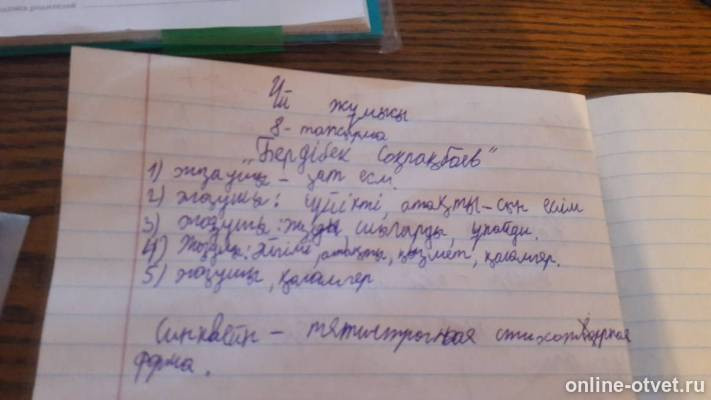 Үй жұмысы
8-тапсырма
"Бердібек Соқпақбаев"
1) жазушы – зат есім.
2) жазушы: сүйікті, атақты – сын есім
3) жазушы: жазды шығарды, ұнайды.
4) Жазушы: әйгілі, атақты, қызмет, қаламгер.
5) жазушы, қаламгер.
Синквейн – пятистрочная стихотворная
форма.
online-otvet.ru